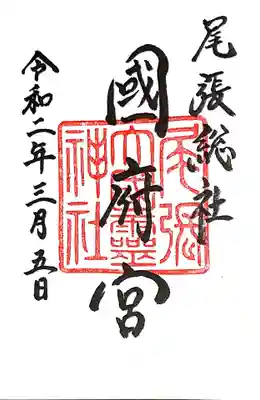 尾張総社
國府宮
令和二年三月五日
尾張大國霊神社